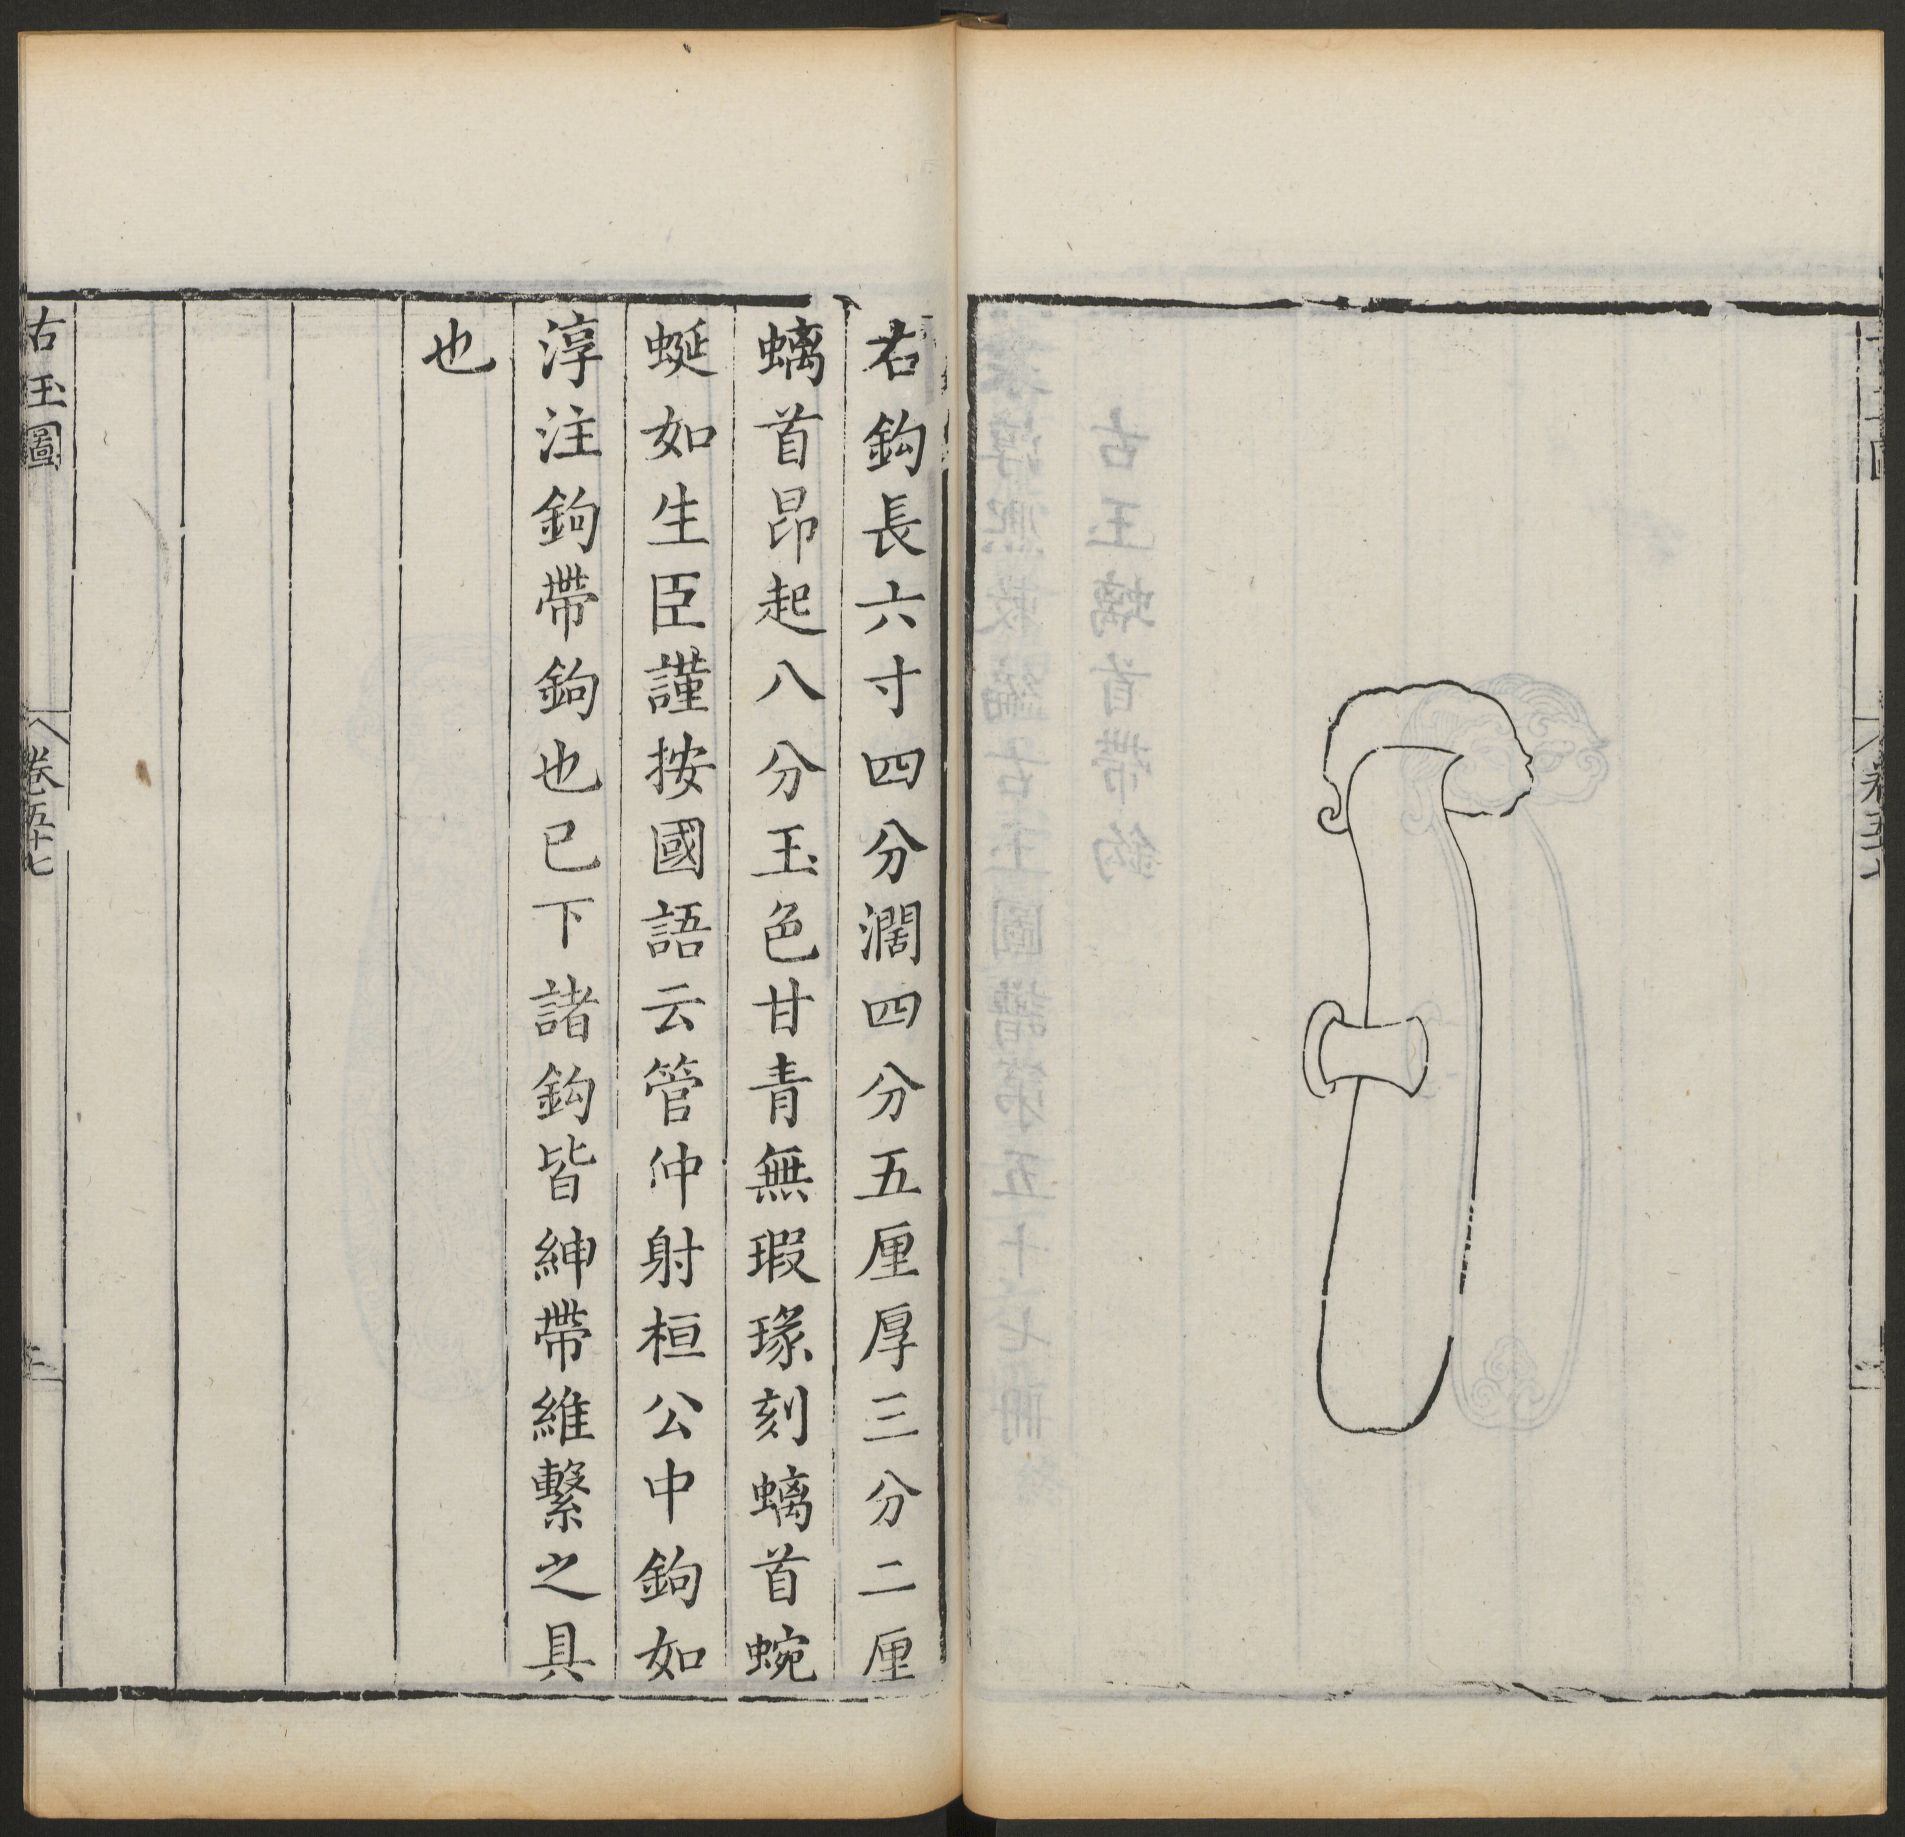 右鈎長六寸四分濶四分五厘厚三分二厘
螭首昂起八分玉色甘青無瑕瑑刻螭首蜿
蜒如生臣謹按國語云管仲射桓公中鉤如
淳注鉤帶鉤也已下諸鈎皆紳帶維繫之具
也
古玉圖
卷五十七